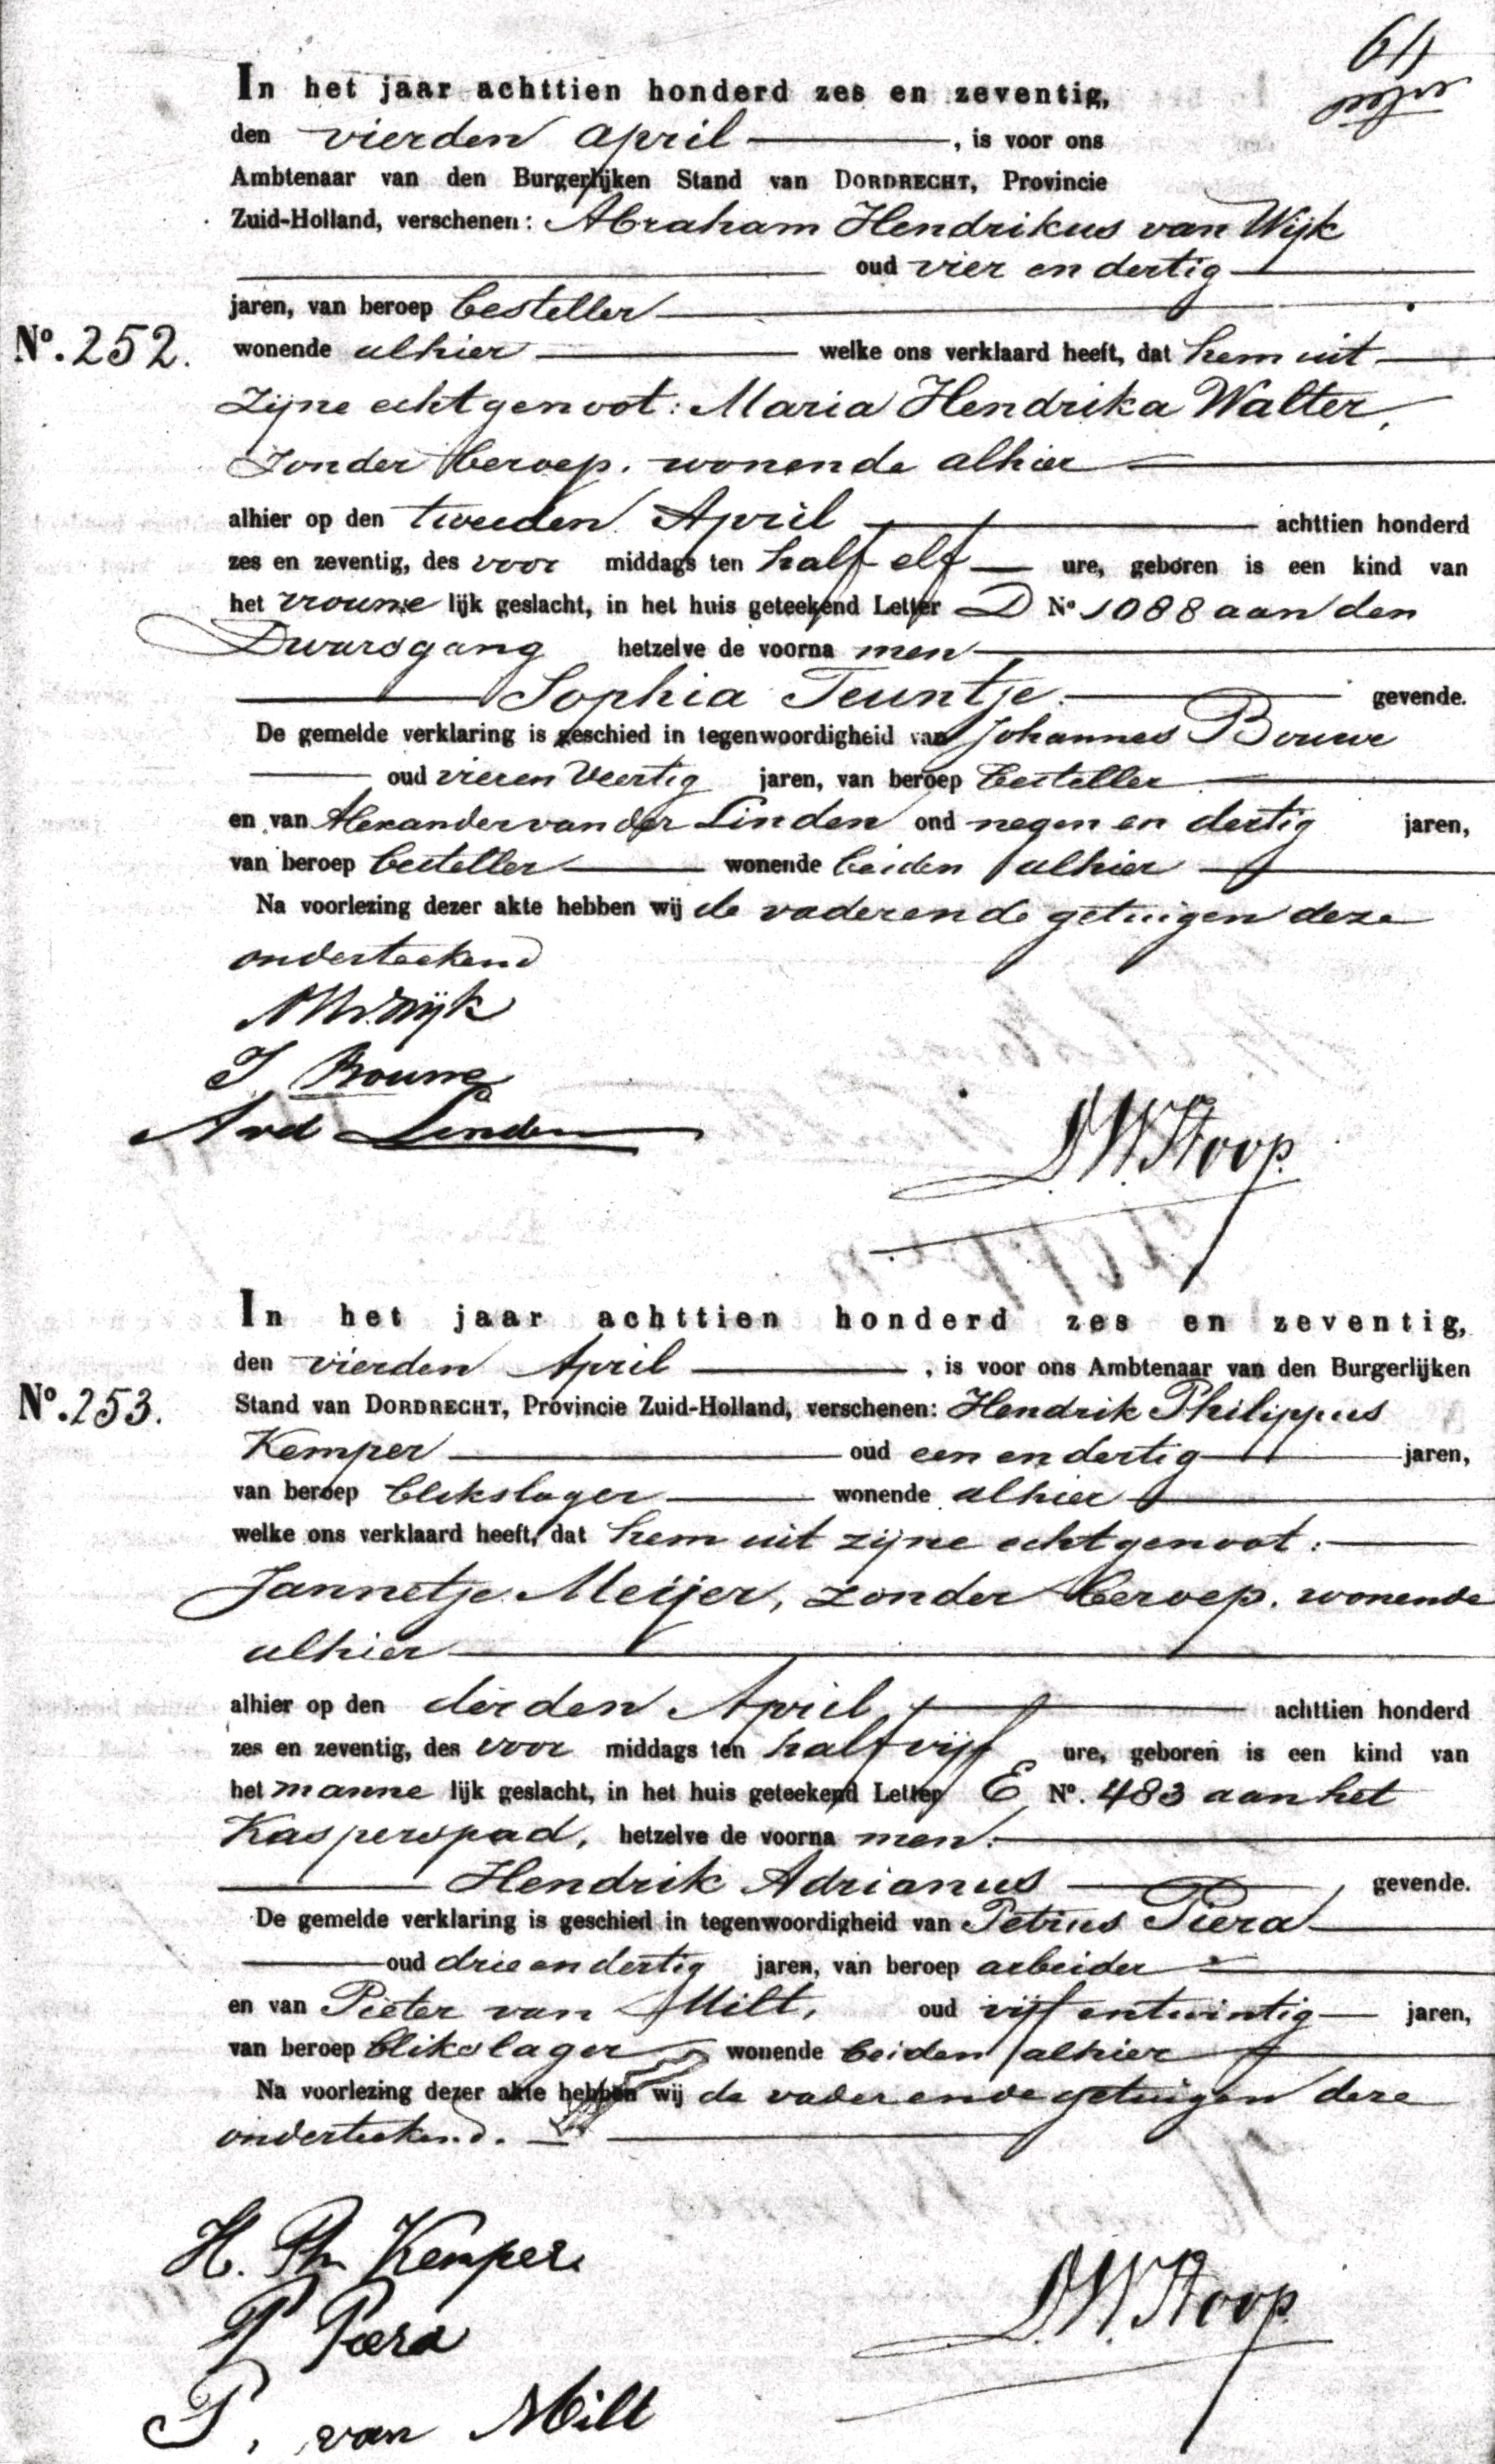 64
In het jaar achttien honderd zes en zeventig,
den vierden april, is voor ons
Ambtenaar van den Burgerlijken Stand van DORDRECHT, Provincie
Zuid-Holland, verschenen: Abraham Hendrikus van Wijk
oud vier en dertig
jaren, van beroep besteller
No. 252. wonende alhier welke ons verklaard heeft, dat hem uit
zijne echtgenoot: Maria Hendrika Walter,
zonder beroep. wonende alhier
alhier op den tweeden April achttien honderd
zes en zeventig, des voor middags ten half elf ure, geboren is een kind van
het vrouwe lijk geslacht, in het huis geteekend Letter D No 1088 aan den
Dwarsgang hetzelve de voorna men
Sophia Teuntje. gevende.
De gemelde verklaring is geschied in tegenwoordigheid van Johannes Bouwe
oud vier en veertig jaren, van beroep besteller
en van Alexander van der Linden oud negen en dertig jaren,
van beroep besteller wonende beiden alhier
Na voorlezing dezer akte hebben wij de vader en de getuigen deze
onderteekend
J Bouwe
A vd Linden
D.W. Stoop.
In het jaar achttien honderd zes en zeventig,
den vierden April, is voor ons Ambtenaar van den Burgerlijken
No. 253. Stand van DORDRECHT, Provincie Zuid-Holland, verschenen: Hendrik Philippus
Kemper oud een en dertig jaren,
van beroep blikslager wonende alhier
welke ons verklaard heeft, dat hem uit zijne echtgenoot:
Jannetje Meijer, zonder beroep. wonende
alhier
alhier op den derden April achttien honderd
zes en zeventig, des voor middags ten half vijf ure, geboren is een kind van
het manne lijk geslacht, in het huis geteekend Letter E No. 483 aan het
Kasperspad, hetzelve de voorna men.
Hendrik Adrianus gevende.
De gemelde verklaring is geschied in tegenwoordigheid van Petrus Piera
oud drie en dertig jaren, van beroep arbeider
en van Pieter van Milt, oud vijf en twintig jaren,
van beroep blikslager wonende beiden alhier
Na voorlezing dezer akte hebben wij de vader en de getuigen deze
onderteekend.
H. Ph Kemper.
P Piera
D.W. Stoop.
P. van Milt